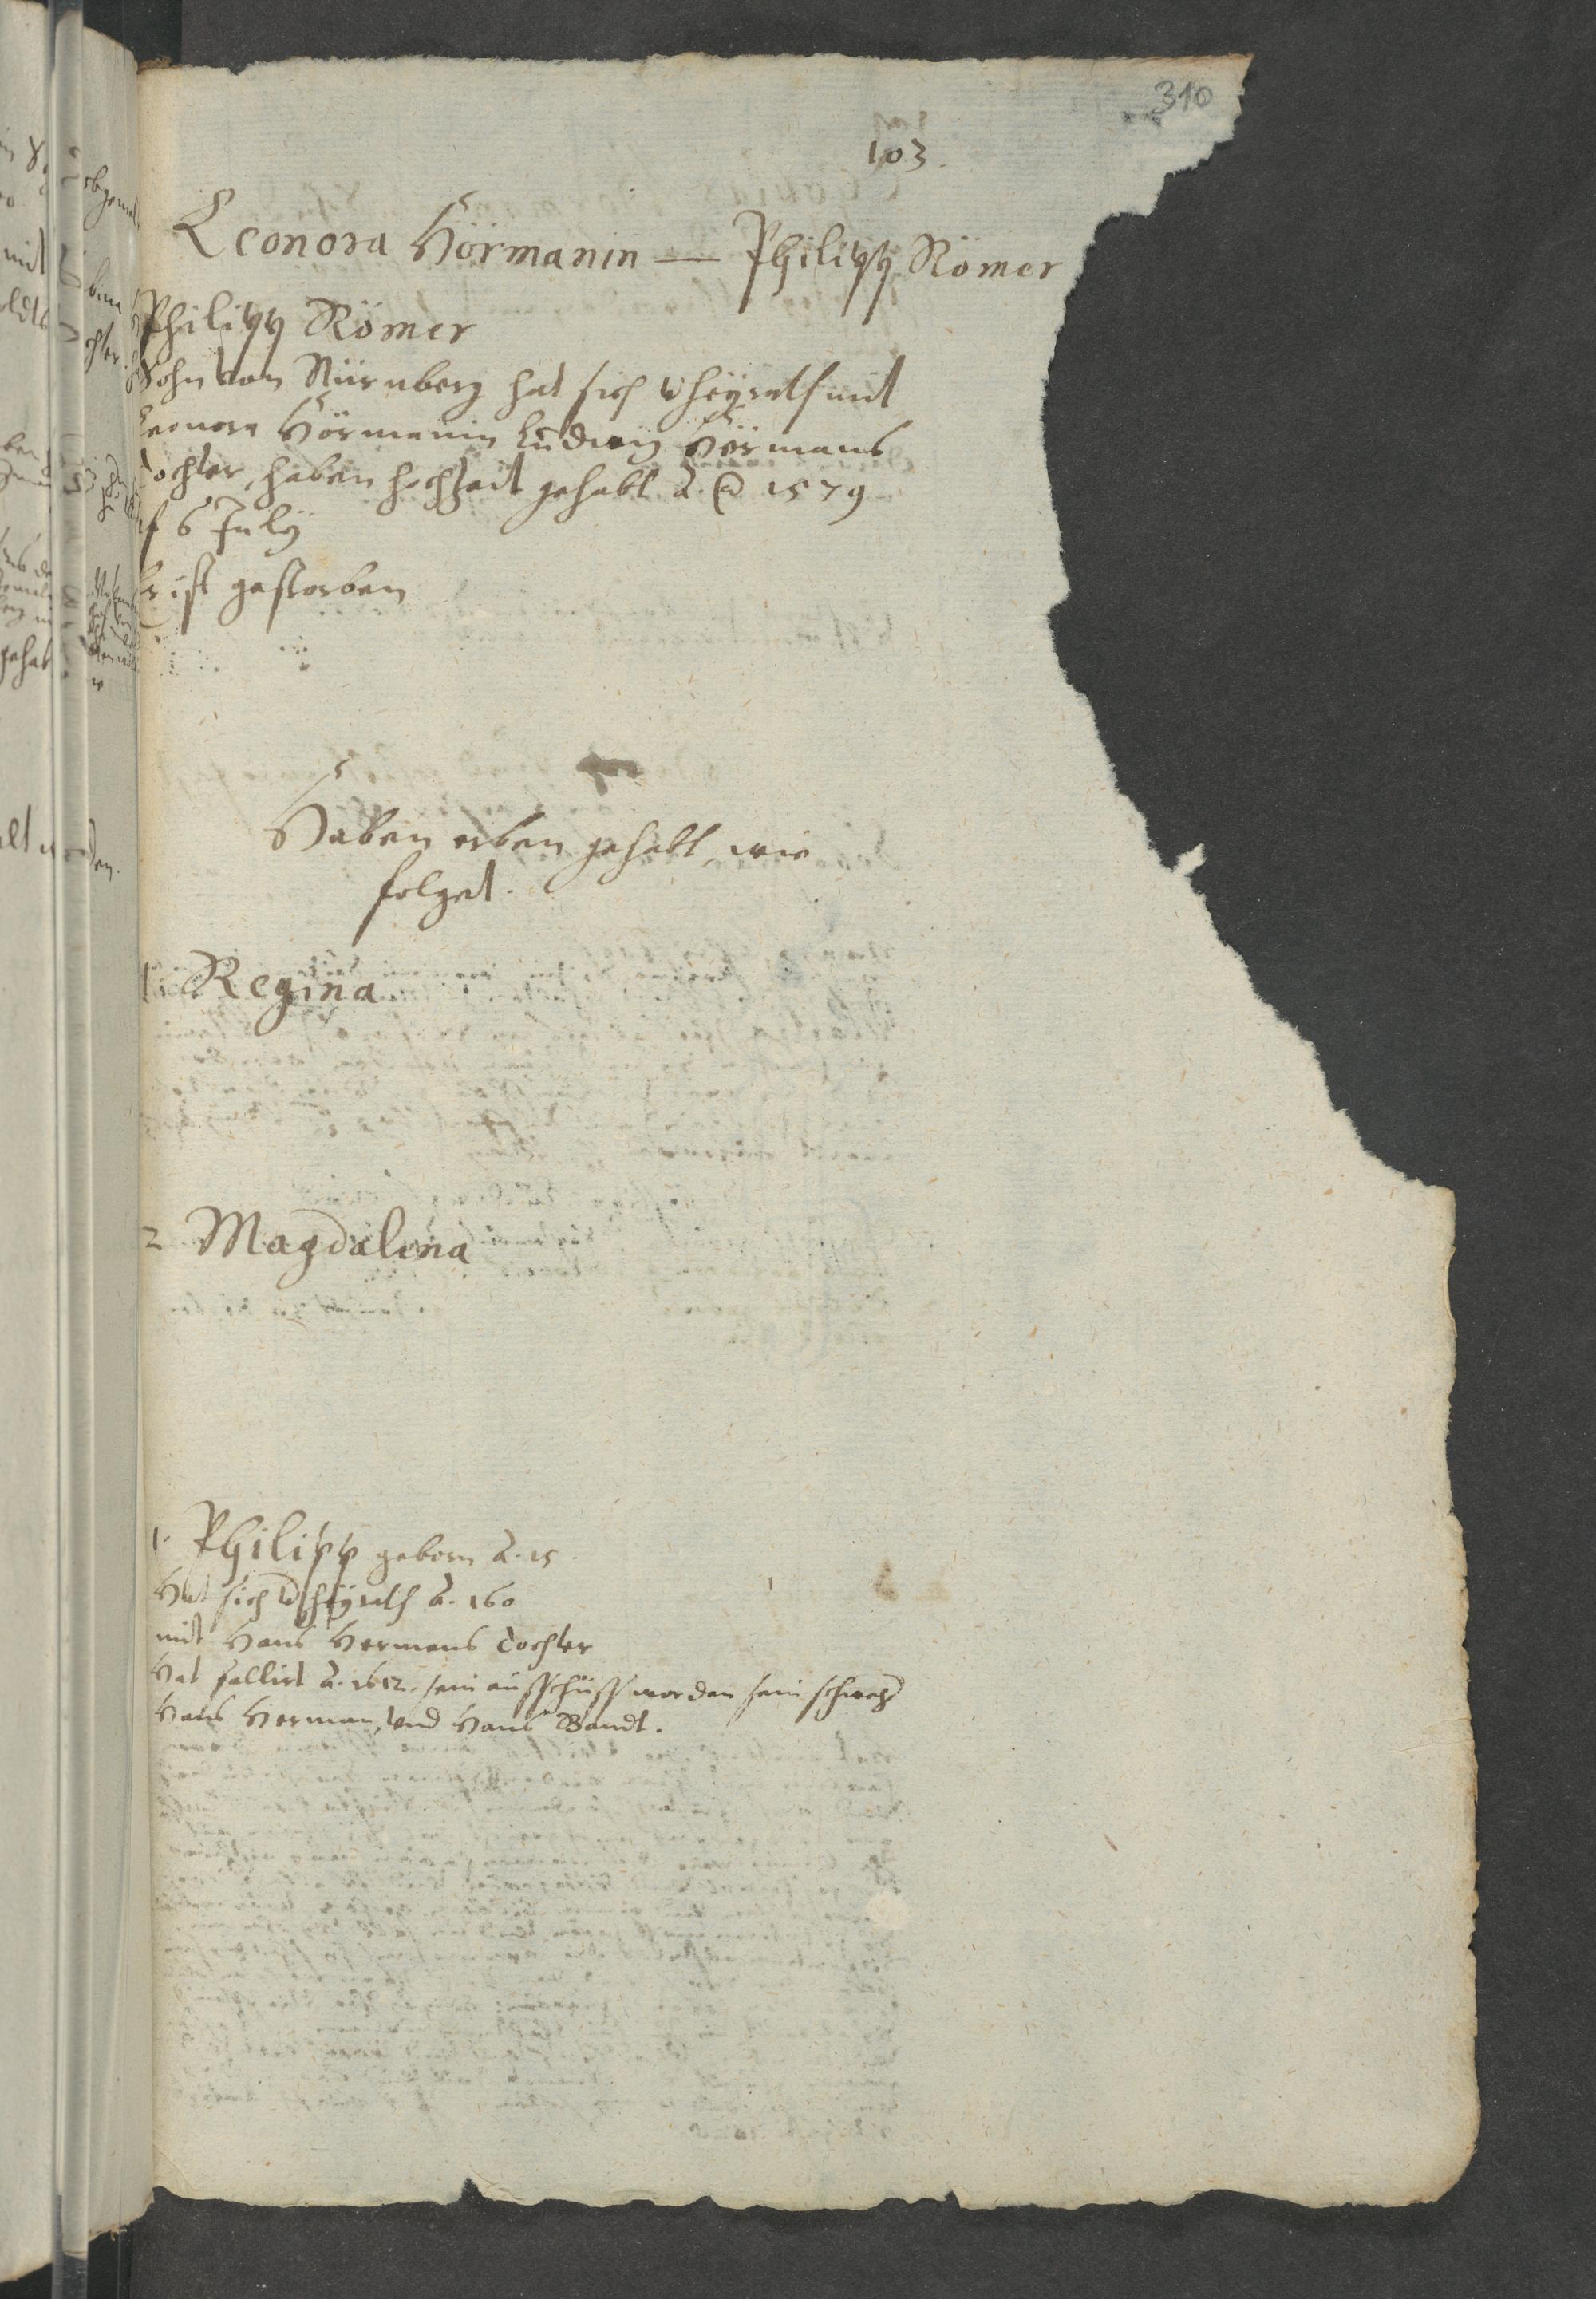 310
103.
Leonora Hörmanin — Philipp Römer
Philipp Römer
Sohn von Nürnberg hat sich vheÿrath mit
Leonora Hörmanin Ludwig Hörmans
dochter, haben hochzeit gehabt A. @ 1579
6 Julÿ
Er ist gestorben
Haben erben gehabt wie
folget.
1. Regina
2 Magdalena
1. Philipp geborn A. 15
Hat sich vheÿrath A. 160
mit Hans Hermans dochter
Hat fallirt A. 1612. sein ausschuss worden sein schweher
Hans Herman, und Hans Bandt.